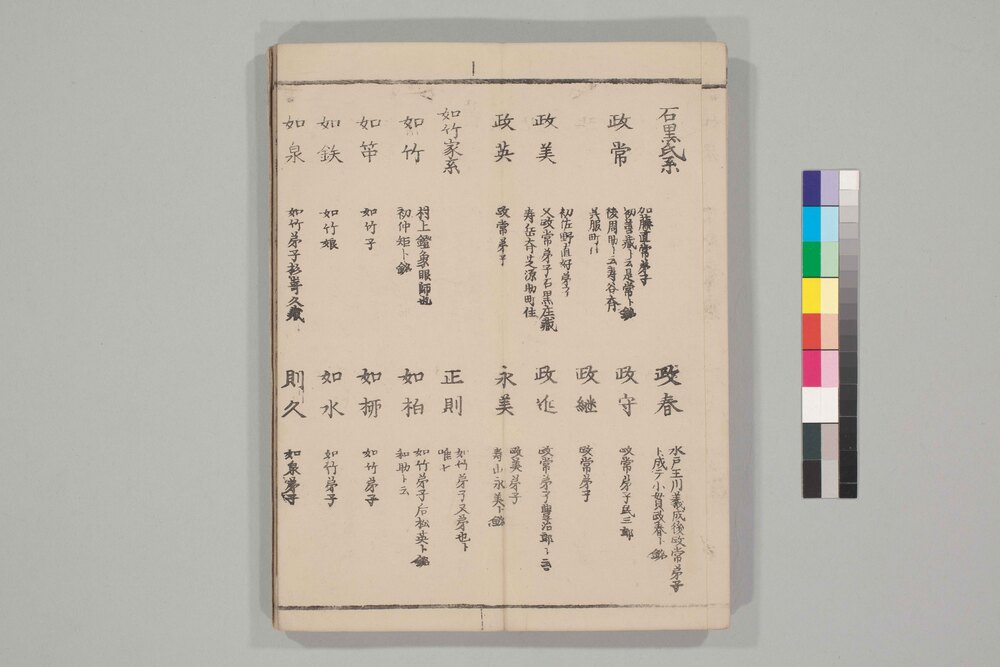 石黒氏系
政常
加藤直常弟子
初善蔵ト云是常ト銘
後周助ト云寿谷斉
呉服町
政美
初佐野直好弟子
又政常弟子石黒庄蔵
寿岳斉芝源助町住
政英
政常弟子
如竹家系
如竹
村上鐙象眼師也
初仲矩ト銘
如竹
如竹子
如鉄
如竹娘
如泉
如竹弟子杉寄久蔵
政春
水戸玉川義成後政常弟子
ト成テ小貫政春ト銘
政守
政常弟子民三郎
政継
政常弟子
政近
政常弟子豊治郎ト云
永美
政美弟子
寿山永美ト銘
正則
如竹弟子又弟也ト
唯ト
如柏
如竹弟子后松英ト銘
和助ト云
如柳
如竹弟子
如水
如竹弟子
則久
如泉弟子